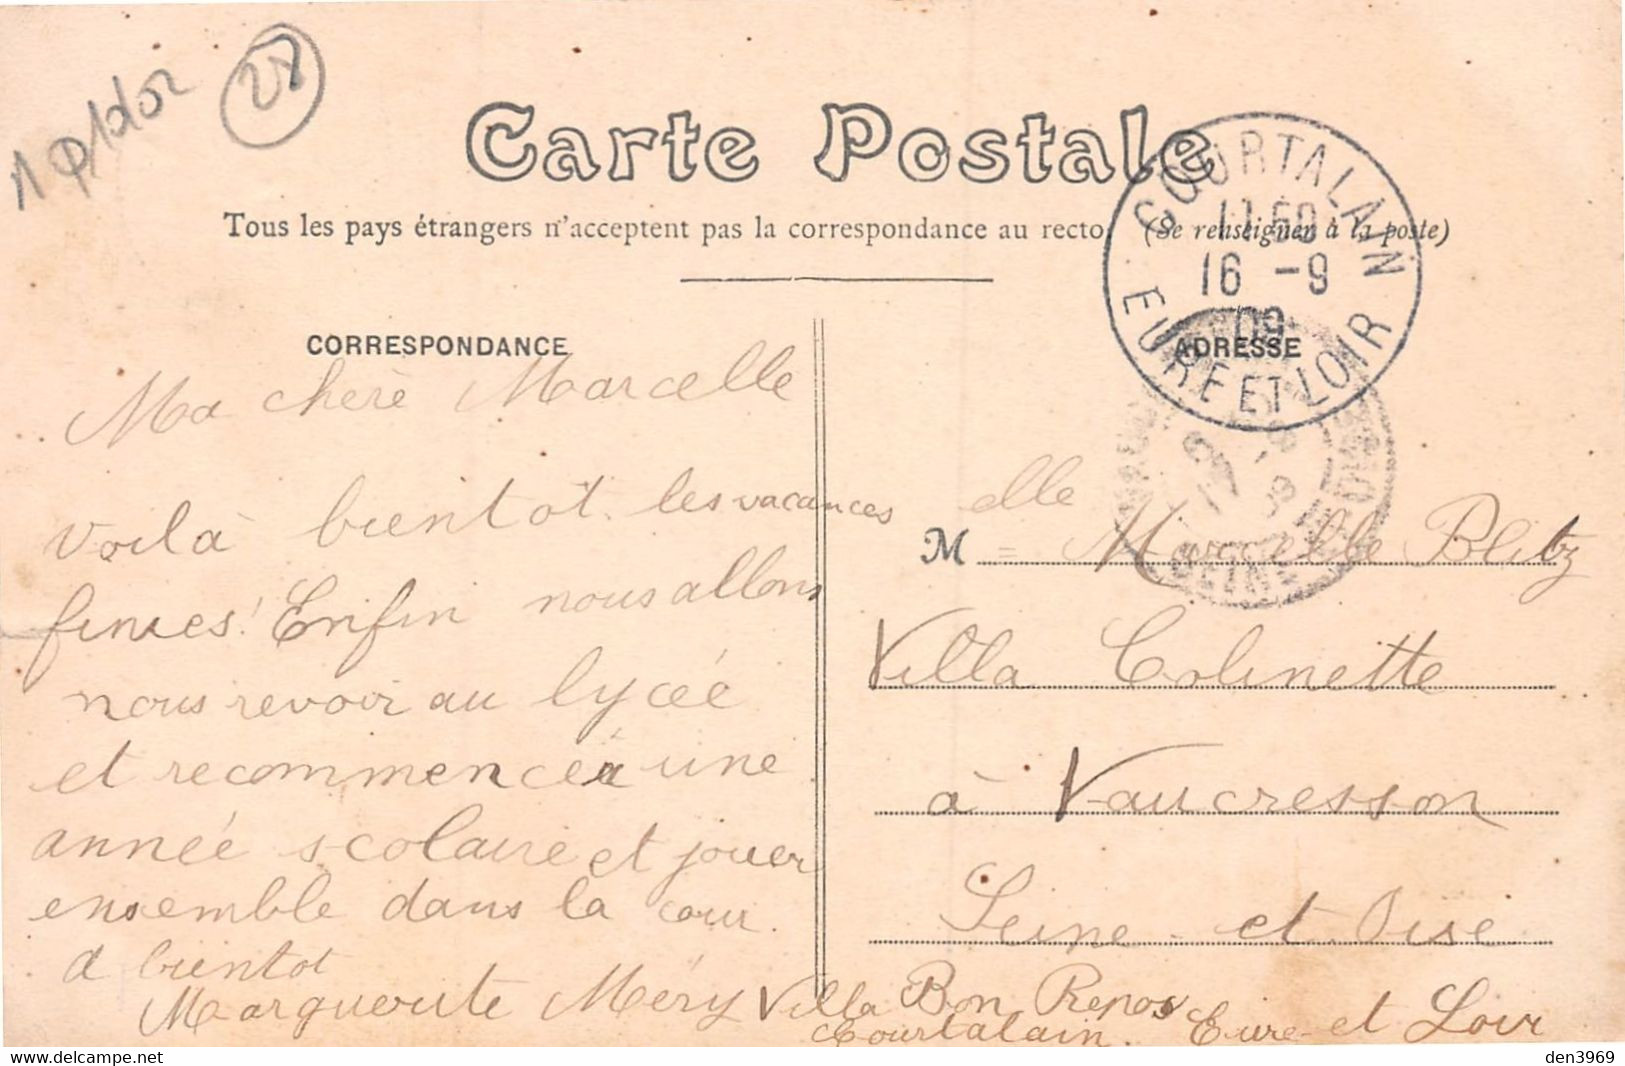 28
Carte Postale
Tous les pays étrangers n'acceptent pas la correspondance au recto. (Se renseigner à la poste)
COURTALAIN
11 50
16 -9
09
EURE ET LOIR
CORRESPONDANCE
Ma chère Marcelle
voilà bientot les vacances
finies! Enfin nous allons
nous revoir au lycée
et recommencer une
année scolaire et jouer
ensemble dans la cour.
a bientot
Marguerite Méry Villa Bon Repos
Courtalain. Eure-et Loir
ADRESSE
SEINE
Melle Marcelle Blitz
Villa Colinette
à Vaucresson
Seine-et-Oise
den3969